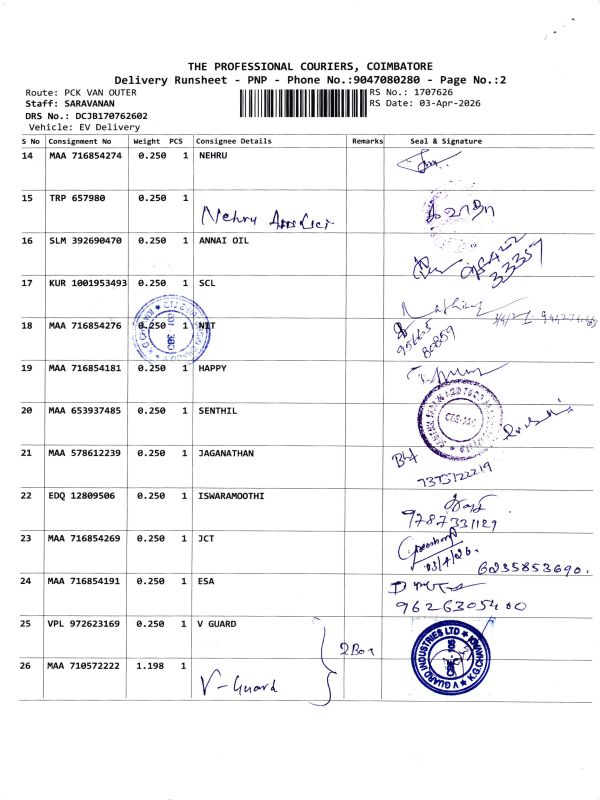 THE PROFESSIONAL COURIERS, COIMBATORE
Delivery Runsheet - PNP - Phone No.:9047080280 - Page No.:2
Route: PCK VAN OUTER
RS No.: 1707626
Staff: SARAVANAN
RS Date: 03-Apr-2026
DRS No.: DCJB170762602
Vehicle: EV Delivery
S No Consignment No Weight PCS Consignee Details Remarks Seal & Signature
14 MAA 716854274 0.250 1 NEHRU
15 TRP 657980 0.250 1
Nehru
16 SLM 392690470 0.250 1 ANNAI OIL
33357
17 KUR 1001953493 0.250 1 SCL
18 MAA 716854276 0.250 1 NIT
80859
19 MAA 716854181 0.250 1 HAPPY
20 MAA 653937485 0.250 1 SENTHIL
21 MAA 578612239 0.250 1 JAGANATHAN
7373122219
22 EDQ 12809506 0.250 1 ISWARAMOOTHI
9787331129
23 MAA 716854269 0.250 1 JCT
03/4/26.
6235853690.
24 MAA 716854191 0.250 1 ESA
9626305400
25 VPL 972623169 0.250 1 V GUARD
2 Box
V GUARD INDUSTRIES LTD
26 MAA 710572222 1.198 1
V-Guard